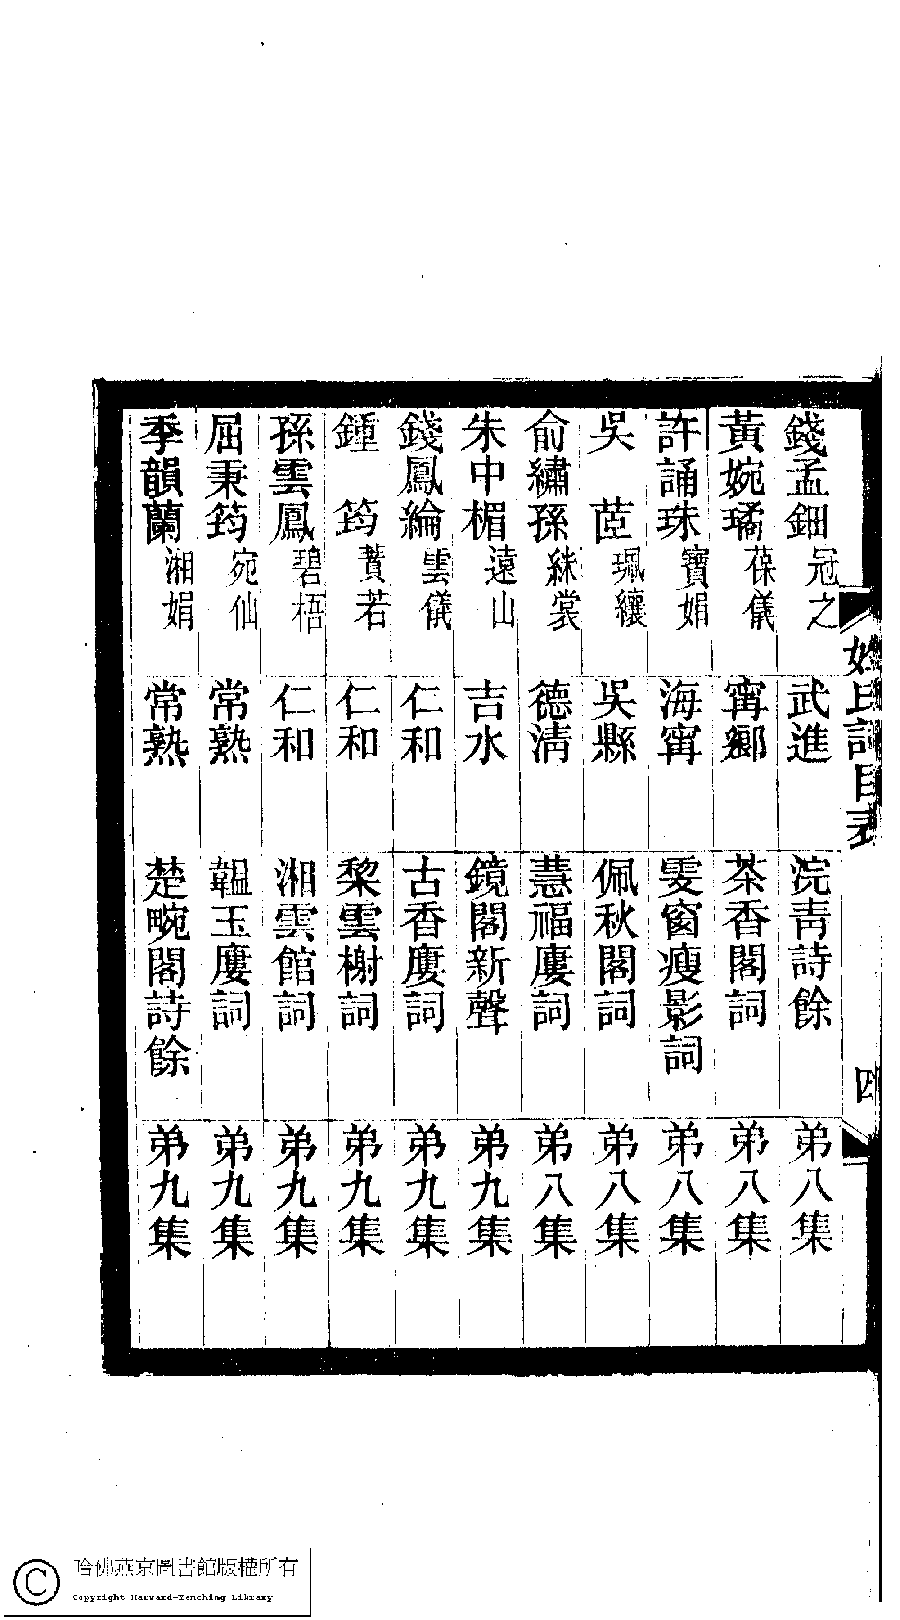 錢孟鈿 冠之 武進 浣青詩餘 弟八集
黃婉璚 葆儀 甯鄉 茶香閣詞 弟八集
許誦珠 寶娟 海甯 雯窗瘦影詞 弟八集
吳茝 珮纕 吳縣 佩秋閣詞 弟八集
俞繡孫 綵裳 德清 慧福廔詞 弟八集
朱中楣 遠山 吉水 鏡閣新聲 弟九集
錢鳳綸 雲儀 仁和 古香廔詞 弟九集
鍾筠 蕡若 仁和 棃雲榭詞 弟九集
孫雲鳳 碧梧 仁和 湘雲館詞 弟九集
屈秉筠 宛仙 常熟 韞玉廔詞 弟九集
季韻蘭 湘娟 常熟 楚畹閣詩餘 弟九集
姓氏詞目表 四
哈佛燕京圖書館版權所有
Copyright Harvard-Yenching Library